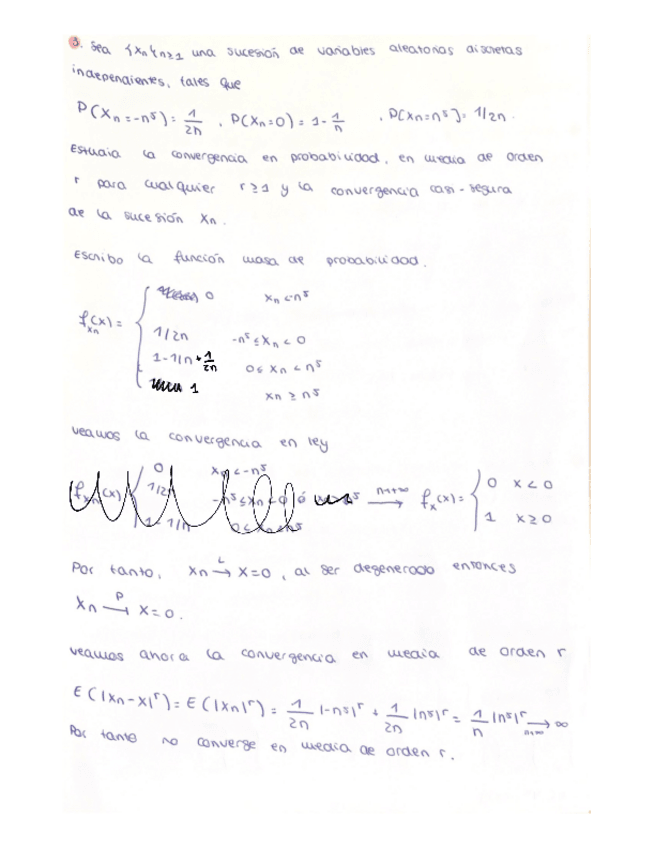 3. Sea {Xn}n≥1 una sucesión de variables aleatorias discretas
independientes, tales que
P(Xn=-n⁵)= 1/2n , P(Xn=0)=1-1/n , P(Xn=n⁵)=1/2n.
Estudia la convergencia en probabilidad, en media de orden
r para cualquier r≥1 y la convergencia casi-segura
de la sucesión Xn.
Escribo la función masa de probabilidad.
0 xn<-n⁵
fxn(x)= 1/2n -n⁵≤xn<0
1-1/n+1/2n 0≤xn<n⁵
1 xn≥n⁵
veamos la convergencia en ley
n→+∞ → fx(x)= { 0 x<0
1 x≥0
Por tanto, Xn →L X=0, al ser degenerado entonces
Xn →P X=0.
veamos ahora la convergencia en media de orden r
E(|Xn-X|ʳ)=E(|Xn|ʳ)= 1/2n |-n⁵|ʳ + 1/2n |n⁵|ʳ = 1/n |n⁵|ʳ → n→∞ ∞
Por tanto no converge en media de orden r.